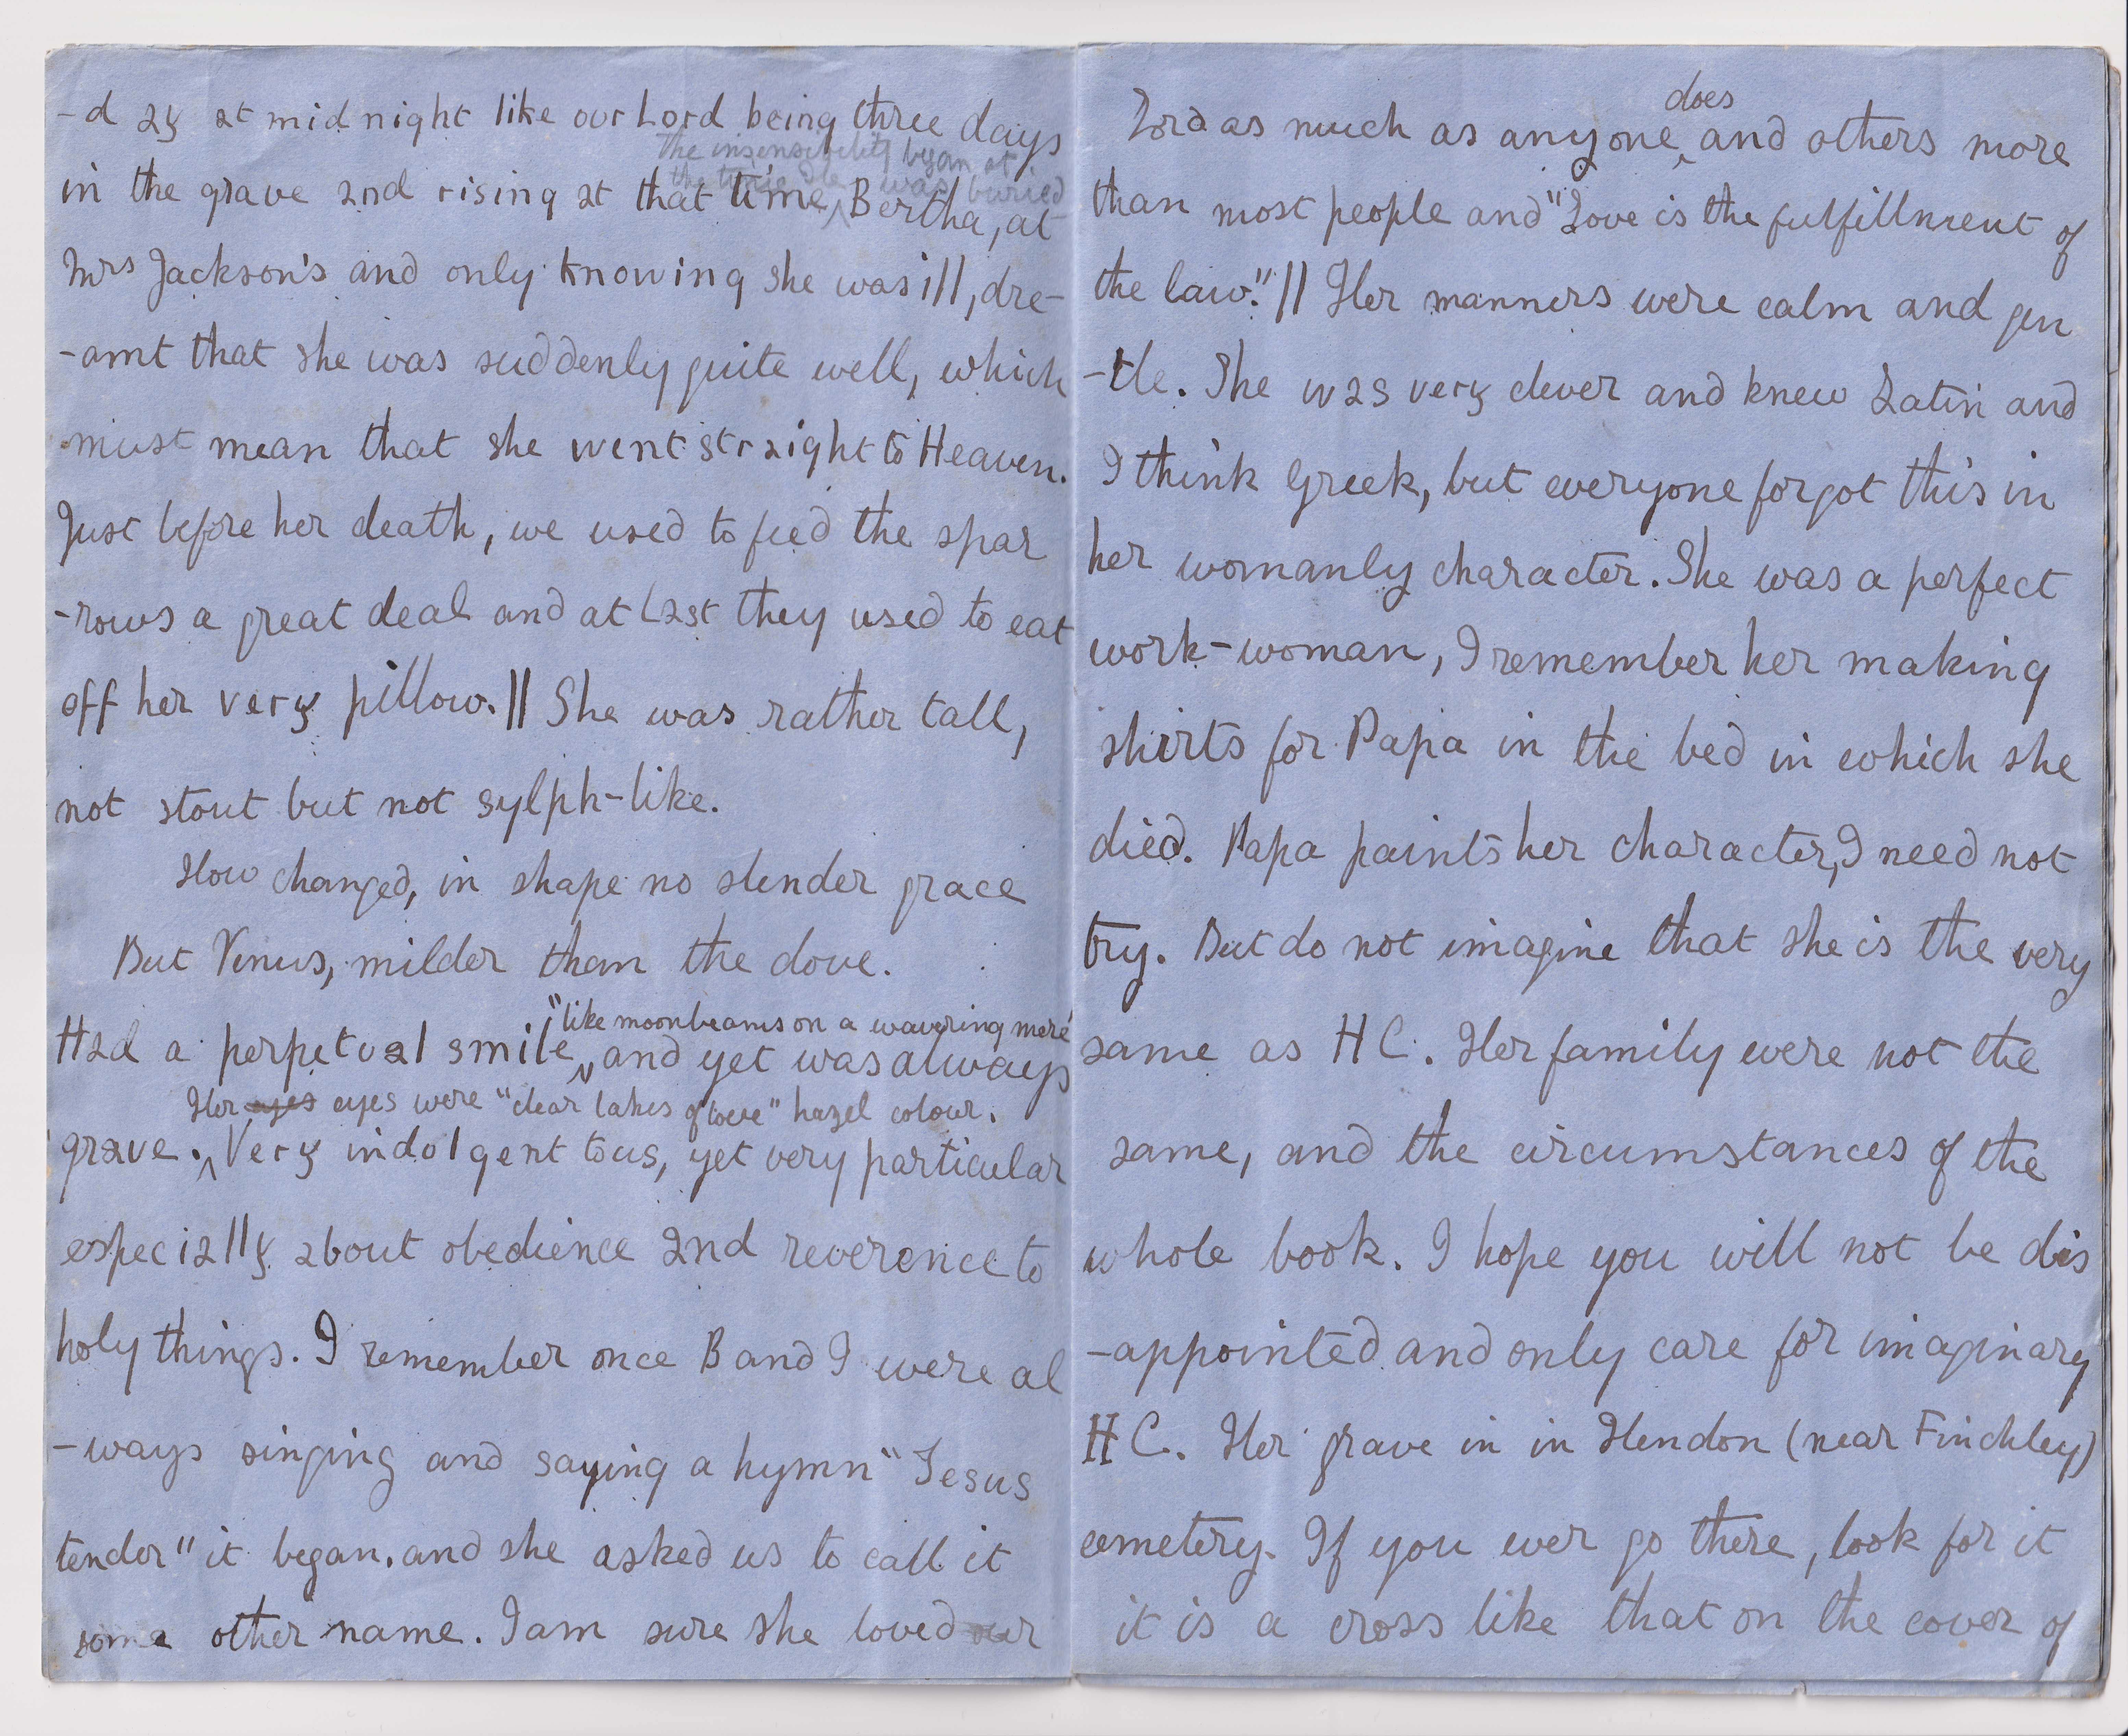 -d ay at midnight like our Lord being three days
The insensibility began at
the time He was buried
in the grave and rising at that time, Bertha, at
Mrs Jackson's and only knowing she was ill, dre-
-amt that she was suddenly quite well, which
must mean that she went straight to Heaven.
Just before her death, we used to feed the spar
-rows a great deal and at last they used to eat
off her very pillow. || She was rather tall,
not stout but not sylph-like.
How changed, in shape no slender grace
But Venus, milder than the dove.
"like moonbeams on a wavering mere"
Had a perpetual smile, and yet was always
Her eyes eyes were "clear lakes of love" hazel colour.
grave. Very indolgent to us, yet very particular
especially about obedience and reverence to
holy things. I remember once B and I were al
-ways singing and saying a hymn "Jesus
tender" it began. and she asked us to call it
some other name. I am sure she loved our
does
Lord as much as anyone and others more
than most people and "Love is the fulfillment of
the law." || Her manners were calm and gen
-tle. She was very clever and knew Latin and
I think Greek, but everyone forgot this in
her womanly character. She was a perfect
work-woman, I remember her making
shirts for Papa in the bed in which she
died. Papa paints her character, I need not
try. But do not imagine that she is the very
same as H C. Her family were not the
same, and the circumstances of the
whole book. I hope you will not be dis
-appointed and only care for imaginary
H C. Her grave in in Hendon (near Finchley)
cemetery. If you ever go there, look for it
it is a cross like that on the cover of